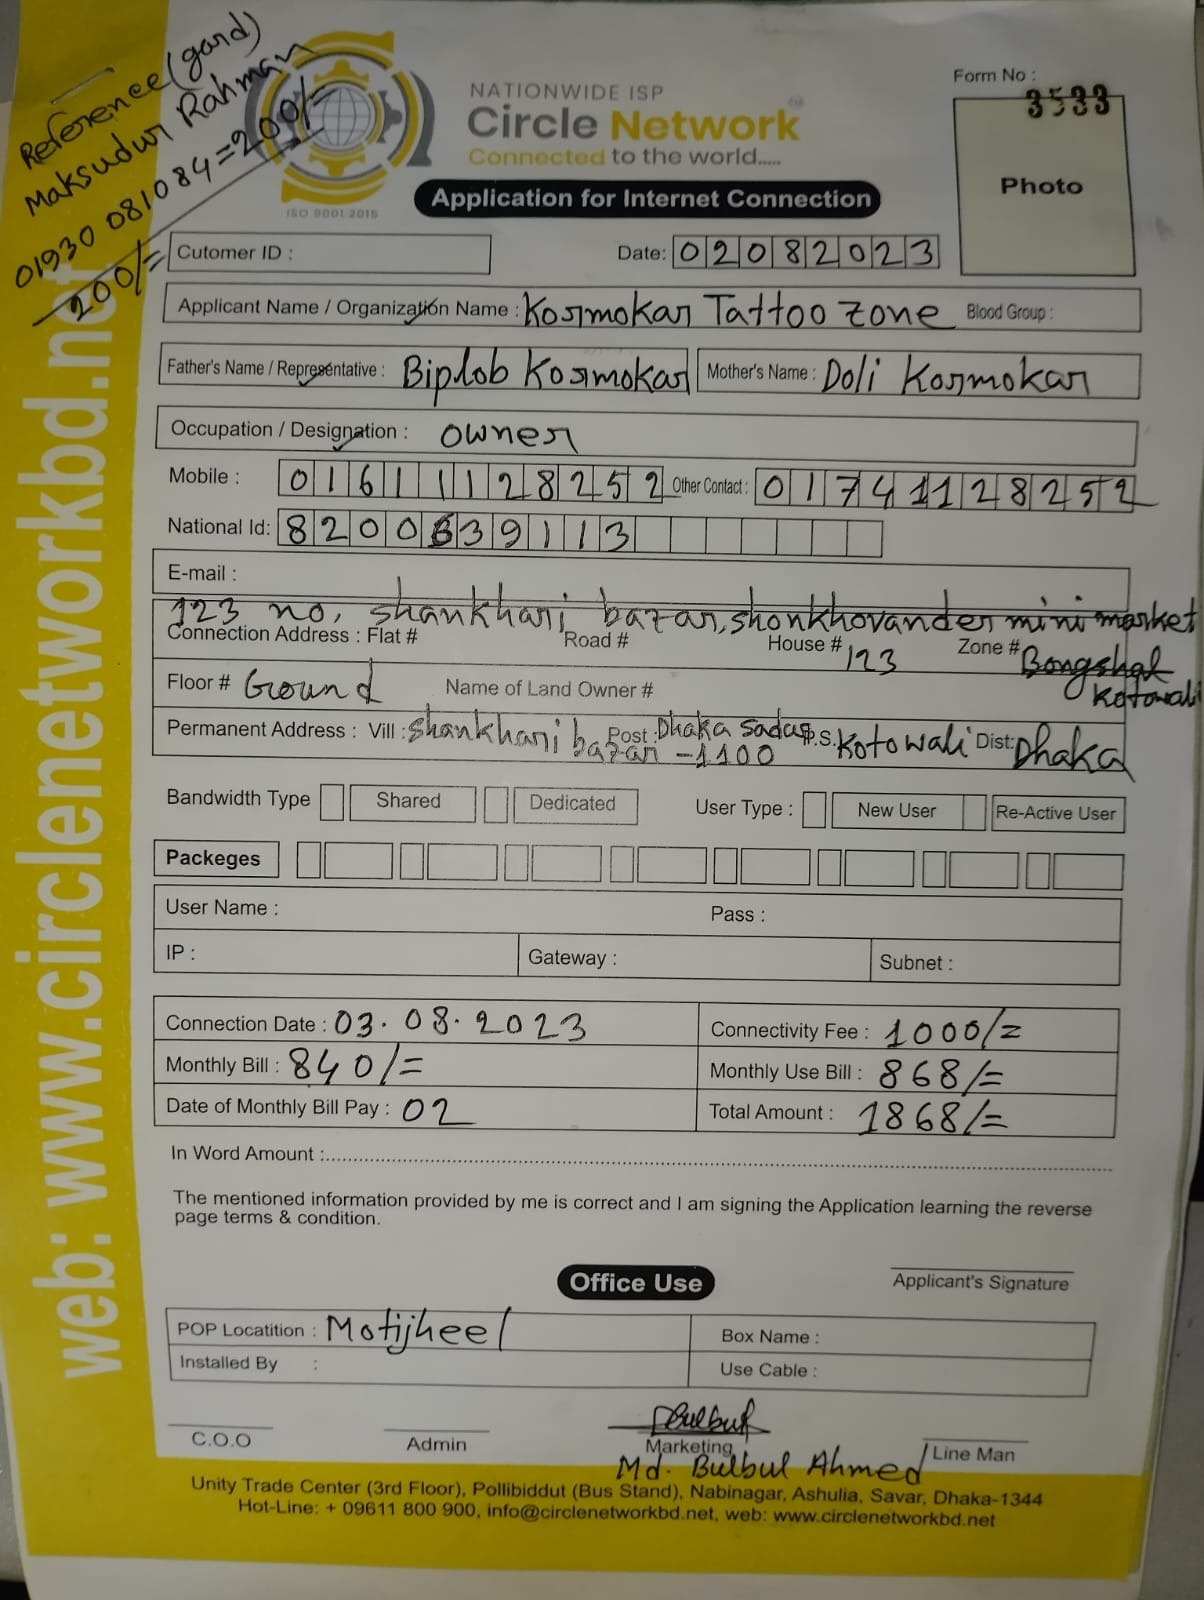 Reference (gard)
Maksudur Rahman
01930 081084 = 200/-
200/=
NATIONWIDE ISP
Circle Network
Connected to the world.....
ISO 9001:2015
Form No :
3533
Photo
Application for Internet Connection
Cutomer ID :
Date: 02082023
Applicant Name / Organization Name : Kormokar Tattoo zone Blood Group :
Father's Name / Representative : Biplob Kormokar Mother's Name : Doli Kormokar
Occupation / Designation : owner
Mobile : 01611128252 Other Contact : 01741128252
National Id: 8200639113
E-mail :
123 no, shankhari bazar, shonkhovander mini market
Connection Address : Flat # Road # House # 123 Zone # Bongshal
Kotowali
Floor # Ground Name of Land Owner #
Permanent Address : Vill : Shankhari bazar Post : Dhaka Sadar -1100 P.S. Kotowali Dist: Dhaka
Bandwidth Type Shared Dedicated User Type : New User Re-Active User
Packeges
User Name : Pass :
IP : Gateway : Subnet :
Connection Date : 03.08.2023 Connectivity Fee : 1000/=
Monthly Bill : 840/= Monthly Use Bill : 868/=
Date of Monthly Bill Pay : 02 Total Amount : 1868/=
In Word Amount :
The mentioned information provided by me is correct and I am signing the Application learning the reverse
page terms & condition.
Applicant's Signature
Office Use
POP Locatition : Motijheel Box Name :
Installed By : Use Cable :
Bulbul
C.O.O Admin Marketing Line Man
Md. Bulbul Ahmed
Unity Trade Center (3rd Floor), Pollibiddut (Bus Stand), Nabinagar, Ashulia, Savar, Dhaka-1344
Hot-Line: + 09611 800 900, info@circlenetworkbd.net, web: www.circlenetworkbd.net
web: www.circlenetworkbd.net